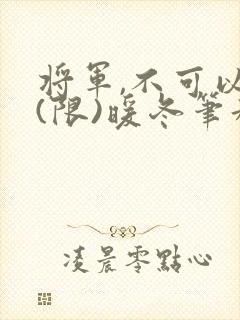 將軍,不可以
(限)暖冬筆
凌晨零點心